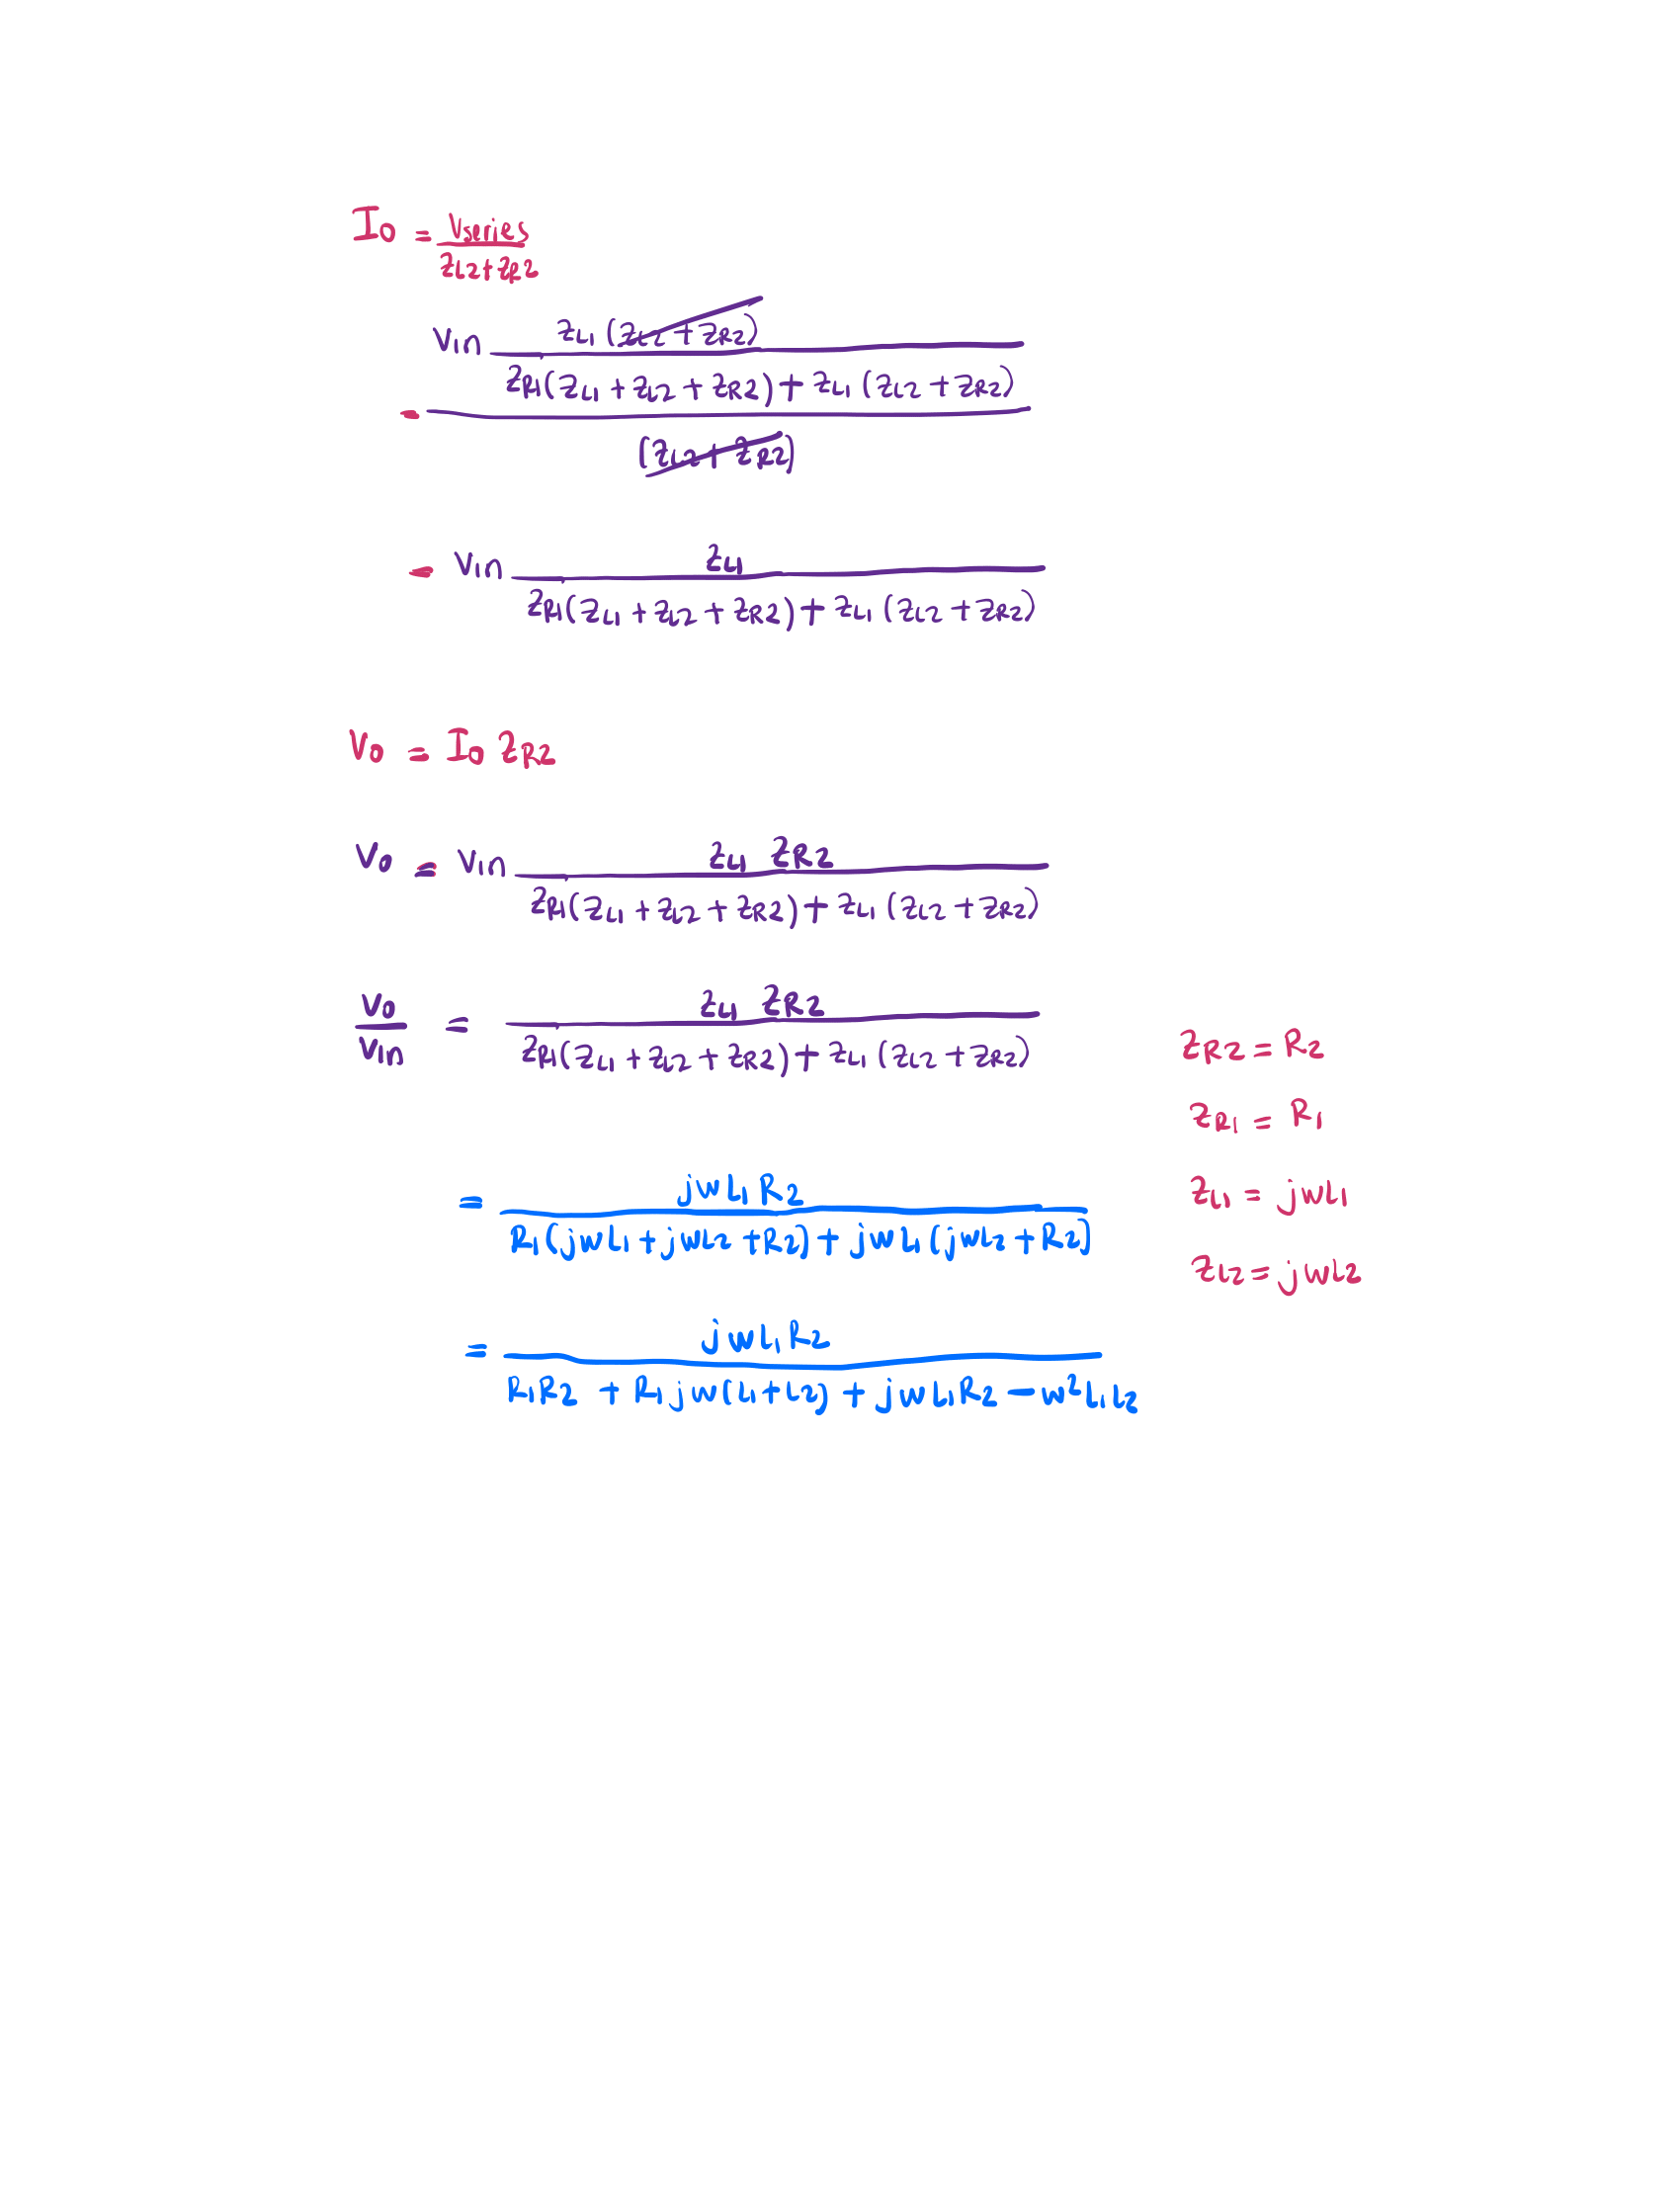 I0 = Vseries / ZL2 + ZR2
= Vin ZL1 (ZL2 + ZR2) / ZR1(ZL1 + ZL2 + ZR2) + ZL1 (ZL2 + ZR2) / (ZL2 + ZR2)
= Vin ZL1 / ZR1(ZL1 + ZL2 + ZR2) + ZL1 (ZL2 + ZR2)
V0 = I0 ZR2
V0 = Vin ZL1 ZR2 / ZR1(ZL1 + ZL2 + ZR2) + ZL1 (ZL2 + ZR2)
V0 / Vin = ZL1 ZR2 / ZR1(ZL1 + ZL2 + ZR2) + ZL1 (ZL2 + ZR2)
ZR2 = R2
ZR1 = R1
ZL1 = jwL1
ZL2 = jwL2
= jwL1R2 / R1(jwL1 + jwL2 + R2) + jwL1(jwL2 + R2)
= jwL1R2 / R1R2 + R1jw(L1 + L2) + jwL1R2 − w²L1L2